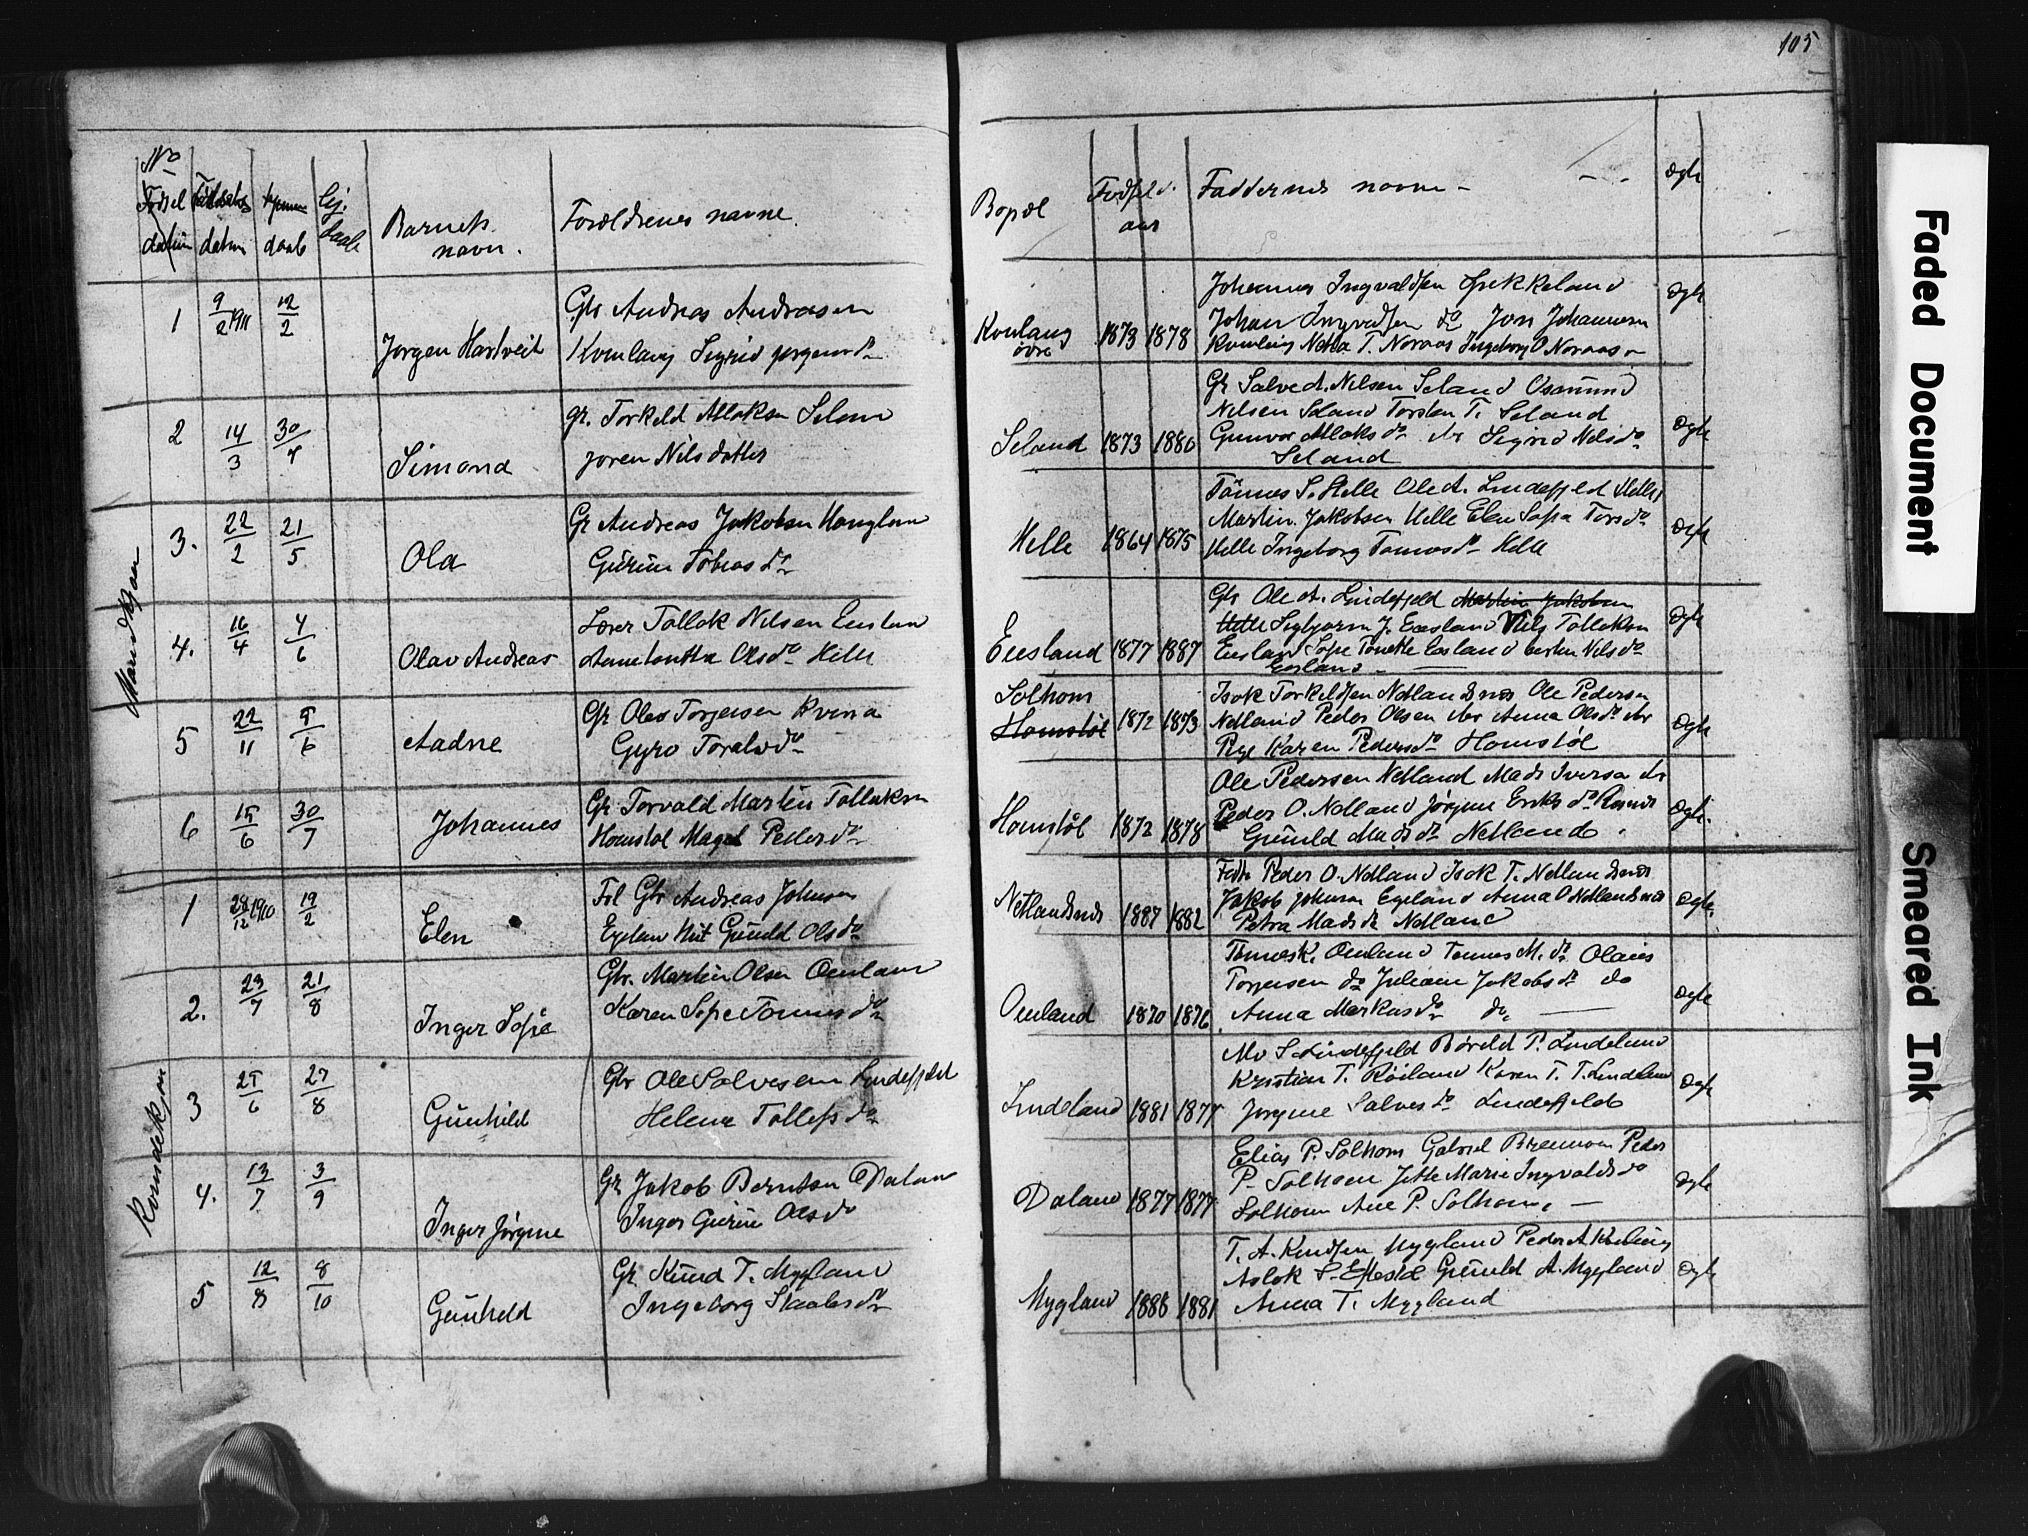 105
No
Fødsel datum
datum
daab
Barnets navn.
Forældrenes navne.
Bopæl
Fødsels aar
Faddernes navne -
Ægte
Mandkjøn
1
9/2 1911
12/2
Jørgen Hartveit
Gbr Andreas Andreasen
Kvinlaug Sigrid Jørgensdr
Kvinlaug øvre
1873 1878
Johannes Ingvaldsen
Johan Ingvaldsen do Jon Johannesen
T. Noraas Ingeborg O Noraas
Ægte
2
14/3
30/4
Simond
Gr. Torkeld Atlaksn Seland
Joren Nilsdatter
Seland
1873 1880
Gr Salve A. Nilsen Seland Osmund
Nilsen Seland Torsten T. Seland
Gunvor Atlaksdr Sigrid Nilsdr
Seland
Ægte
3.
22/2
21/5
Ola
Gr Andreas Jakobsen
Gurine Tobiasdr
Helle
1864 1875
Tønnes S. Helle Ole A. Lindefjeld Helle
Martin Jakobsen Helle Elen Sofia
Helle Ingeborg Tønnesdr Helle
Ægte
4.
16/4
4/6
Olav Andreas
Lærer Tollak Nilsen Eesland
Olsdr Helle
Eesland
1877 1887
Gbr Ole A. Lindefjeld Martin Jakobsen
Helle Sigbjørn J. Eesland Nils Tollaksn
Eesland Sofie Tonette Eesland Nilsdr
Eesland
Ægte
5
22/11
5/6
Aadne
Gr Olav Torjersen Kvina
Gyro
Solhom
Homstøl
1872 1873
Isak Torkeldsen Netlandsnes Ole Pedersen
Netland Peder Olsen Anna Olsdr
Karen Pedersdr Homstøl
Ægte
6
15/6
30/7
Johannes
Gr Torvald Martin Tollaksn
Homstøl Magel Pedersdr
Homstøl
1872 1878
Ole Pedersen Netland Mads Iversen
Peder O. Netland Jørgine Eriksdr
Gunild Madsdr Netland
Ægte.
Kvindekjøn
1
28/12 1910
19/2
Elen
Gbr Andreas Johnsen
Egeland Gunild Olsdr
Netlandsnes
1887 1882
Peder O. Netland Isak T. Netlandsnes
Jakob Johnsen Egeland Anna O Netlandsnes
Petra Madsdr Netland
Ægte.
2.
23/7
21/8
Inger Sofie
Gbr. Martin Olsen Omland
Karen Sofie Tønnesdr
Omland
1870 1876
Tønnes K. Omland Tønnes M. do Olaus
Torjersen do Juliane Jakobsdr do
Anna Markusdr do
Ægte
3
25/6
27/8
Gunhild
Gbr Ole Salvesen Lindefjeld
Helene Tollefsdr
Lindeland
1881 1877
S Lindefjeld P. Lindeland
Kristian T. Røiland Karen T. T. Lindeland
Jørgine Salvesdr Lindefjeld
Ægte
4.
13/7
3/9
Inger Jørgine
Gr Jakob Berntsen Daland
Inger Gurine Olsdr
Daland
1877 1877
Elias P. Solhom Gabriel Peder
P. Solhom Jette Marie Ingvaldsdr
Solhom Ane P. Solhom.
Ægte
5
12/8
8/10
Gunhild
Gr. Knud T. Mygland
Ingeborg
Mygland
1888 1881
T. A. Knudsen Mygland Peder A Kvinlaug
Aslak S. Gunild A. Mygland
Anna T. Mygland
Ægte
Faded Document
Smeared Ink